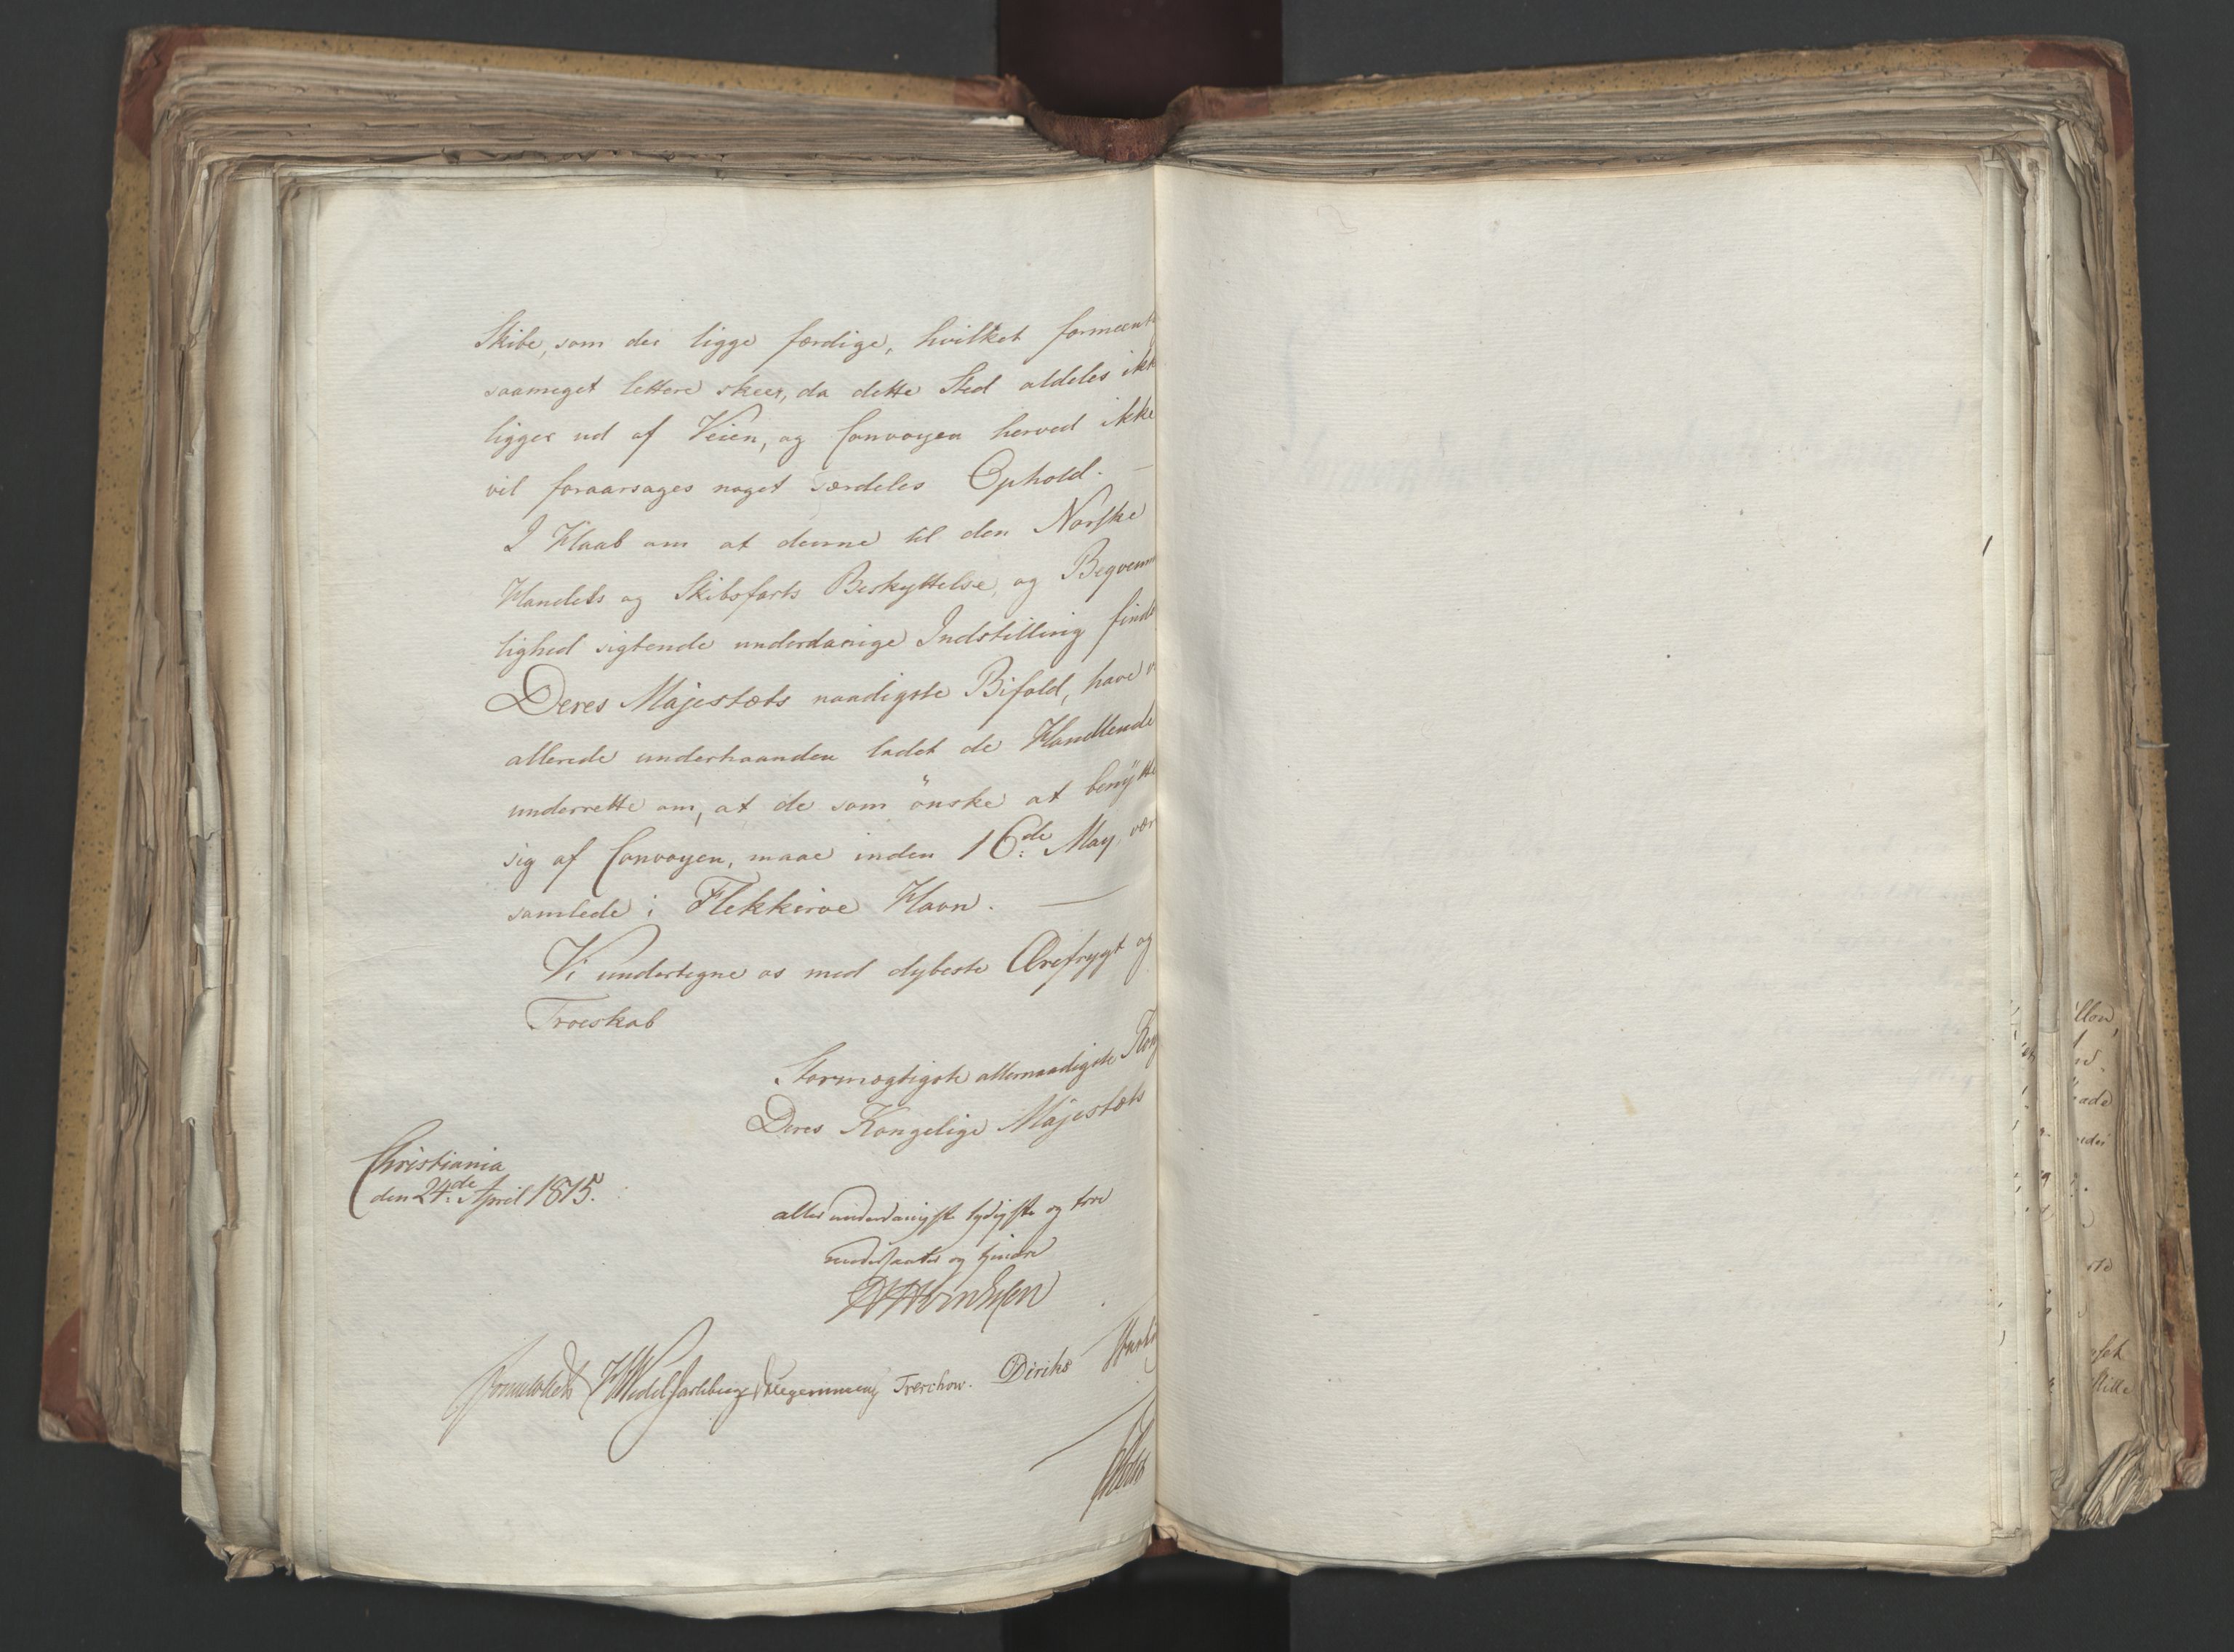 Skibe, som der ligge færdige, hvilket formeent
saameget lettere skeer, da dette Sted aldeles ikk
ligger ud af Veien, og Convoyen herved ikke
vil foraarsages noget særdeles Ophold. —
I Haab om at denne til den Norske
Handels og Skibsfarts Beskyttelse, og Beqvem
lighed sigtende underdanige Indstilling finde
Deres Majestæts naadigste Bifald, have v
allerede underhaanden ladet de Handlende
underrette om, at de som önske at benÿtte
sig af Convoyen, maae inden 16de May, vær
samlede i Flekkeroe Havn. —
Vi undertegne os med dybeste Ærefrygt og
Troeskab
Stormægtigste allernaadigste Kong
Deres Kongelige Majestæts
Christiania
den 24de April 1815.
allerunderdanigste lydigste og troe
undersaatter og tjenere
Sommerhielm HWedel Jarlsberg Hegermann Treschow. Diriks